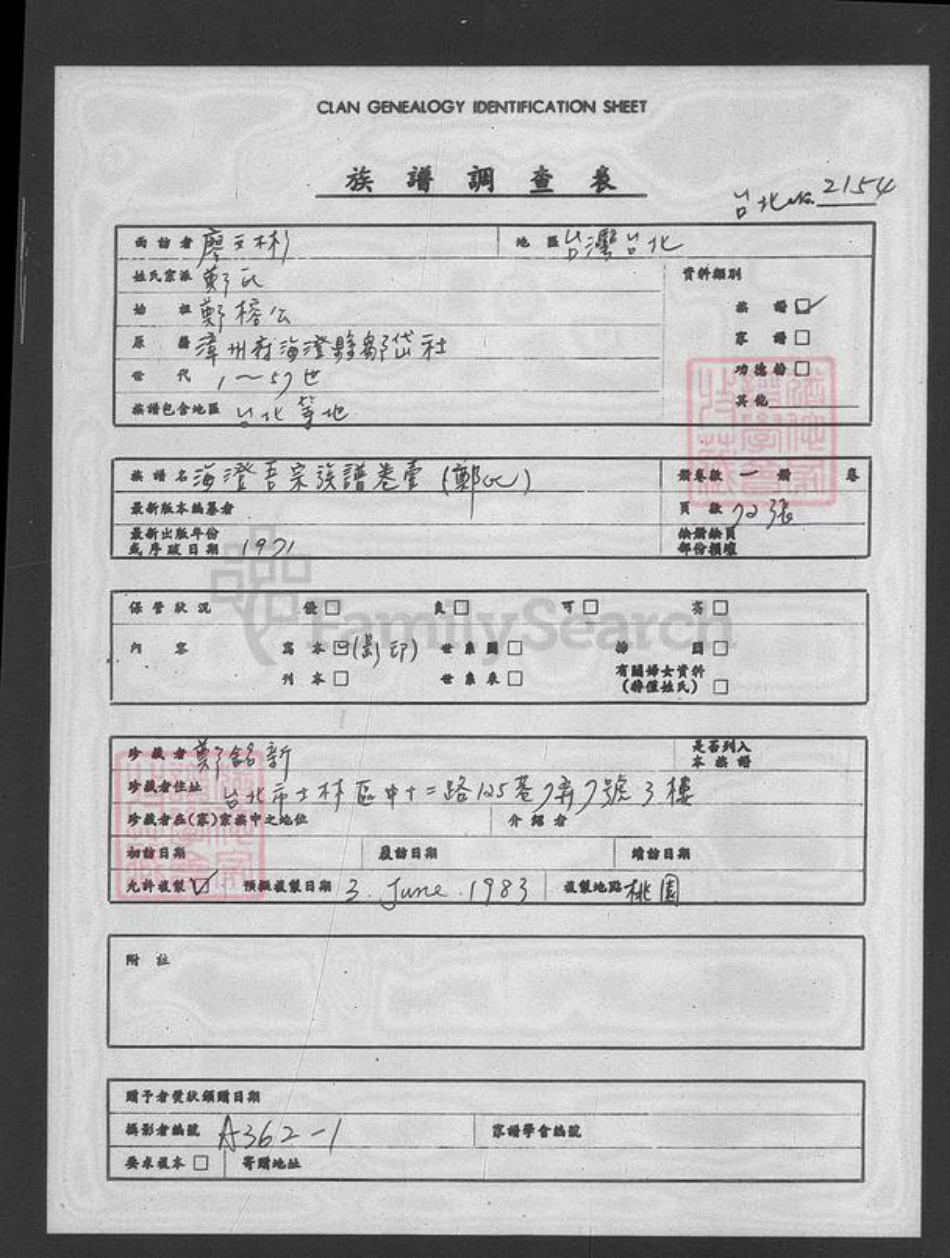 CLAN GENEALOGY IDENTIFICATION SHEET
族譜調查表
台北No. 2154
面訪者 廖文彬 地區 台灣台北
姓氏宗派 鄭氏 資料類別
始祖 鄭榕公 族譜
原籍 漳州府海澄縣鄒岱社 家譜
世代 1~57世 功德榜
族譜包含地區 台北等地 其他
族譜名 海澄吾宗族譜卷壹 (鄭氏) 冊卷數 一 冊 卷
最新版本編纂者 頁數 72張
最新出版年份 缺冊缺頁
或序跋日期 1971 部份損壞
保管狀況 優 良 可 劣
內容 寫本 (影印) 世系圖 插圖
刊本 世系表 有關婦女資料
(非僅姓氏)
珍藏者 鄭銘新 是否列入
本族譜
珍藏者住址 台北市士林區中十二路125巷7弄7號3樓
珍藏者在(家)宗族中之地位 介紹者
初訪日期 覆訪日期 續訪日期
允許複製 預擬複製日期 3. June. 1983 複製地點 桃園
附註
贈予者獎狀頒贈日期
攝影者編號 A362-1 家譜學會編號
要求複本 寄贈地址
FamilySearch